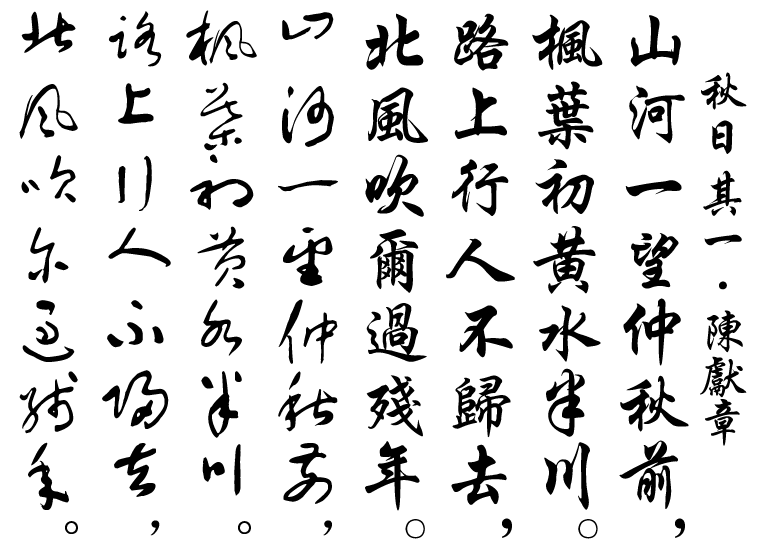 秋日其一·陳獻章
山河一望仲秋前，
楓葉初黃水半川。
路上行人不歸去，
北風吹爾過殘年。
山河一望仲秋前，
楓葉初黃水半川。
路上行人不歸去，
北風吹爾過殘年。